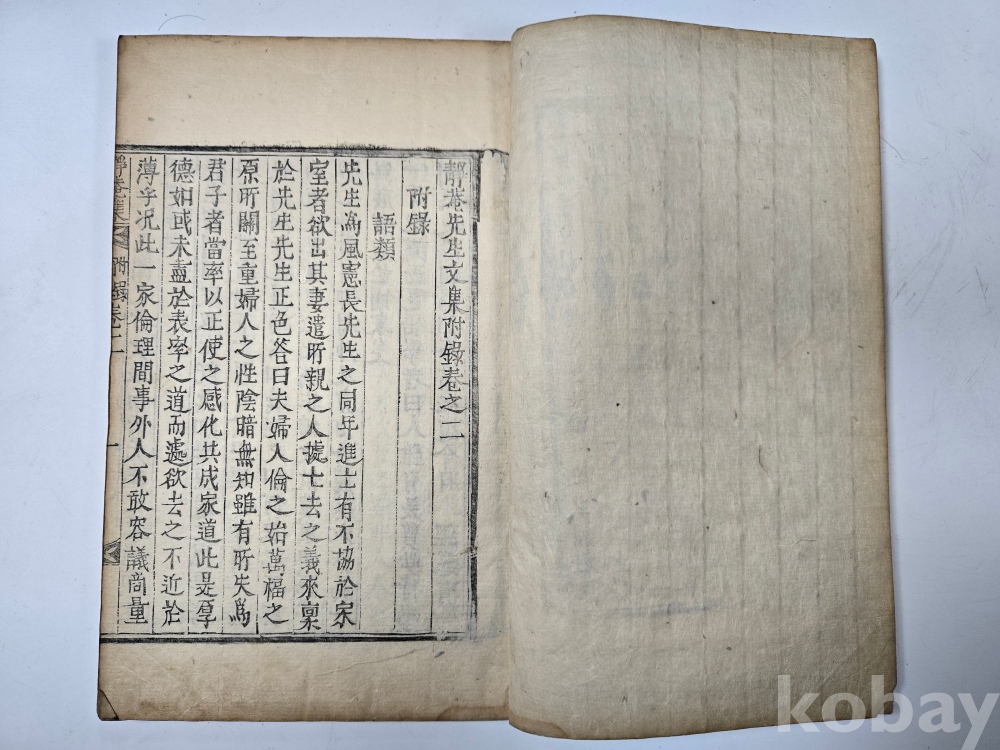 靜菴先生文集附錄卷之二
附錄
語類
先生爲風憲長先生之同年進士有不協於家
室者欲出其妻遣所親之人據七去之義來稟
於先生先生正色答曰夫婦人倫之始萬福之
原所關至重婦人之性陰暗無知雖有所失爲
君子者當率以正使之感化共成家道此是厚
德如或未盡於表率之道而遽欲去之不近於
薄乎况此一家倫理間事外人不敢容議商量
靜菴集
附錄卷二
一
kobay